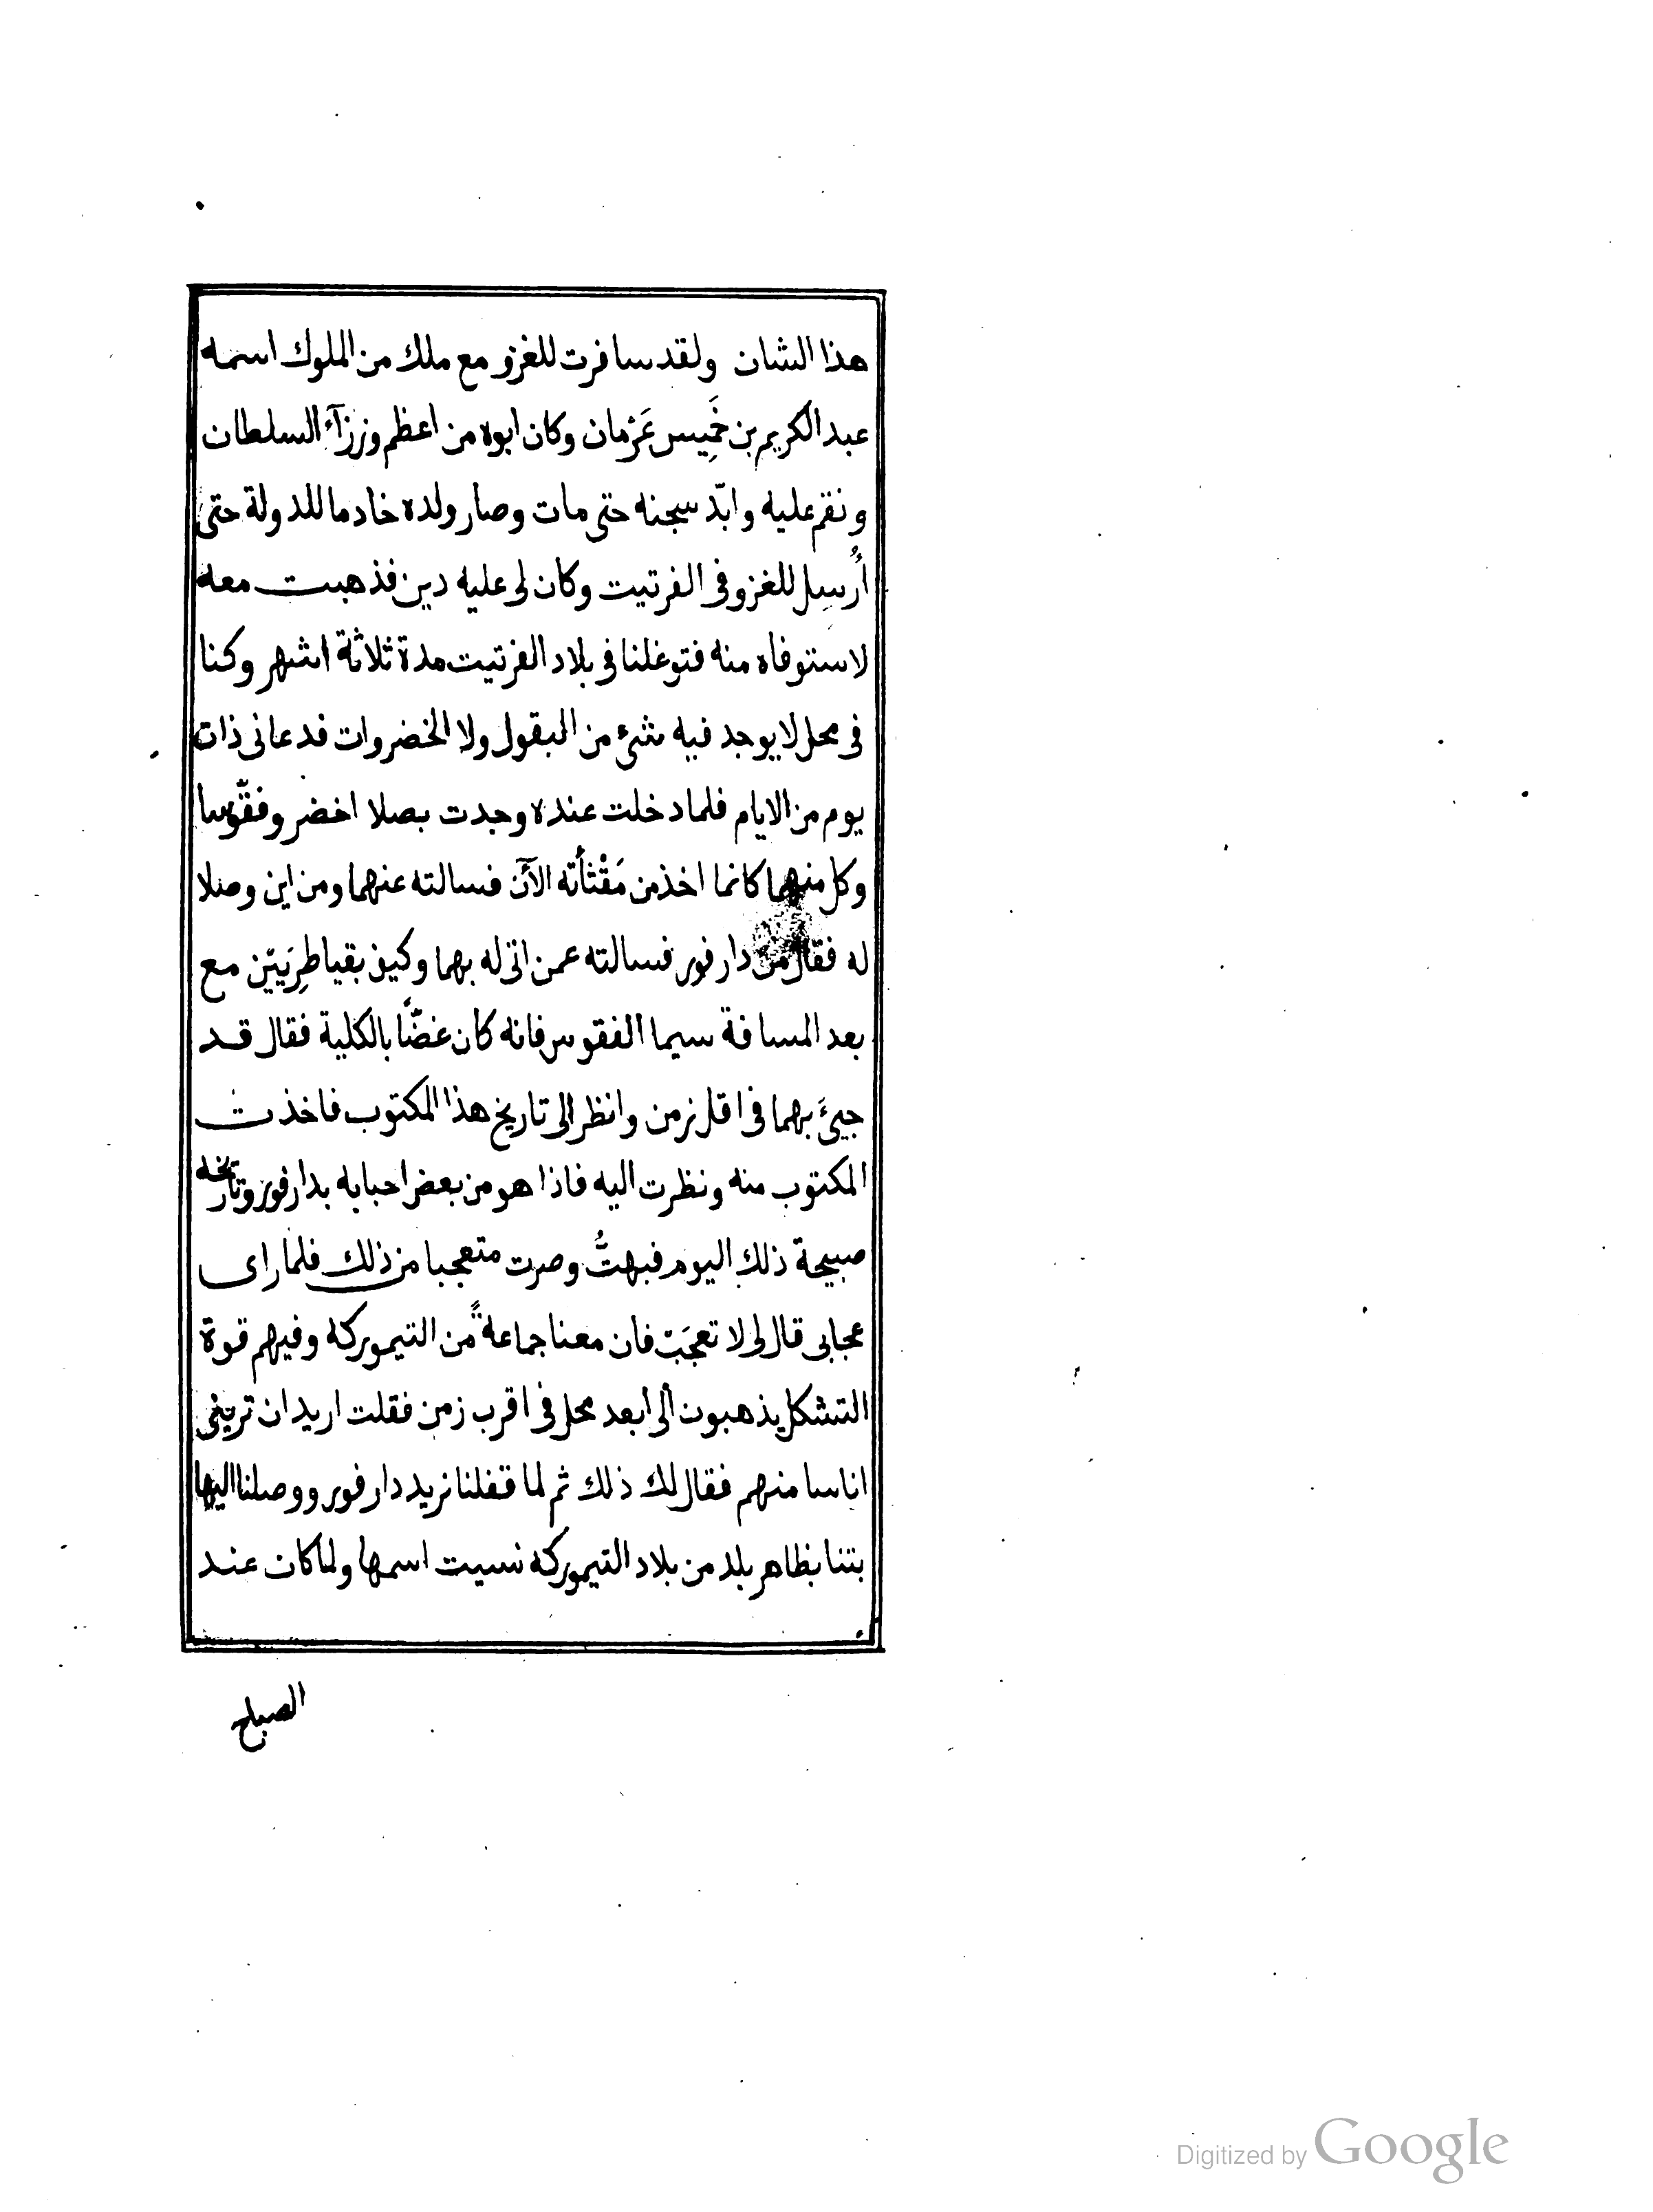 هذا الشان ولقد سافرت للغزو مع ملك من الملوك اسمه
عبد الكريم بن خَمِيس عَرْمان وكان ابوه من اعظم وزرآء السلطان
ونقم عليه وابّد سجنه حتى مات وصار ولده خادما للدولة حتى
أُرسل للغزو فى الفرتيت وكان لى عليه دين فذهبت معه
لاستوفاه منه فتوغلنا فى بلاد الفرتيت مدة ثلاثة اشهر وكنا
فى محل لا يوجد فيه شئ من البقول ولا الخضروات فدعانى ذات
يوم من الايام فلما دخلت عنده وجدت بصلا اخضر وفقّوسا
وكل منهما كانما اخذ من مَقْثأته الآن فسالته عنهما ومن اين وصلا
له فقال من دار فور فسالته عمن اتى له بهما وكيف بقيا طرِيَيّن مع
بعد المسافة سيما الفقوس فانه كان غضًّا بالكلية فقال قد
جيئَ بهما فى اقل زمن وانظر الى تاريخ هذا المكتوب فاخذت
المكتوب منه ونظرت اليه فاذا هو من بعض احبابه بدار فور وتاريخه
صبيحة ذلك اليوم فبهتُّ وصرت متعجبا من ذلك فلما راى
عجابى قال لى لا تعجَبْ فان معنا جماعةً من التيموركه وفيهم قوة
التشكل يذهبون الى ابعد محل فى اقرب زمن فقلت اريد ان ترينى
اناسا منهم فقال لك ذلك ثم لما قفلنا نريد دار فور ووصلنا اليها
بتنا بظاهر بلد من بلاد التيموركه نسيت اسمها ولما كان عند
الصباح
Digitized by Google